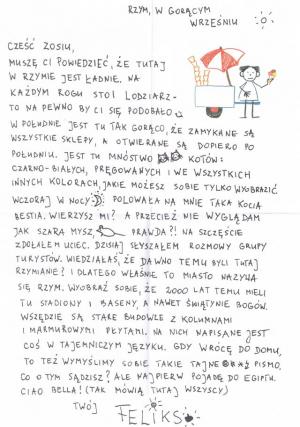 RZYM, W GORĄCYM
WRZEŚNIU
CZEŚĆ ZOSIU,
MUSZĘ CI POWIEDZIEĆ, ŻE TUTAJ
W RZYMIE JEST ŁADNIE. NA
KAŻDYM ROGU STOI LODZIARZ-
TO NA PEWNO BY CI SIĘ PODOBAŁO.
W POŁUDNIE JEST TU TAK GORĄCO, ŻE ZAMYKANE SĄ
WSZYSTKIE SKLEPY, A OTWIERANE SĄ DOPIERO PO
POŁUDNIU. JEST TU MNÓSTWO KOTÓW:
CZARNO-BIAŁYCH, PRĘGOWANYCH I WE WSZYSTKICH
INNYCH KOLORACH, JAKIE MOŻESZ SOBIE TYLKO WYOBRAZIĆ
WCZORAJ W NOCY POLOWAŁA NA MNIE TAKA KOCIA
BESTIA. WIERZYSZ MI? A PRZECIEŻ NIE WYGLĄDAM
JAK SZARA MYSZ, PRAWDA?! NA SZCZĘŚCIE
ZDOŁAŁEM UCIEC. DZISIAJ SŁYSZAŁEM ROZMOWY GRUPY
TURYSTÓW. WIEDZIAŁAŚ, ŻE DAWNO TEMU BYLI TUTAJ
RZYMIANIE? I DLATEGO WŁAŚNIE TO MIASTO NAZYWA
SIĘ RZYM. WYOBRAŹ SOBIE, ŻE 2000 LAT TEMU MIELI
TU STADIONY I BASENY, A NAWET ŚWIĄTYNIE BOGÓW.
WSZĘDZIE SĄ STARE BUDOWLE Z KOLUMNAMI
I MARMUROWYMI PŁYTAMI, NA NICH NAPISANE JEST
COŚ W TAJEMNICZYM JĘZYKU. GDY WRÓCĘ DO DOMU,
TO TEŻ WYMYŚLIMY SOBIE TAKIE TAJNE PISMO.
CO O TYM SĄDZISZ? ALE NAJPIERW POJADĘ DO EGIPTU.
CIAO BELLA! (TAK MÓWIĄ TUTAJ WSZYSCY)
TWÓJ
FELIKS